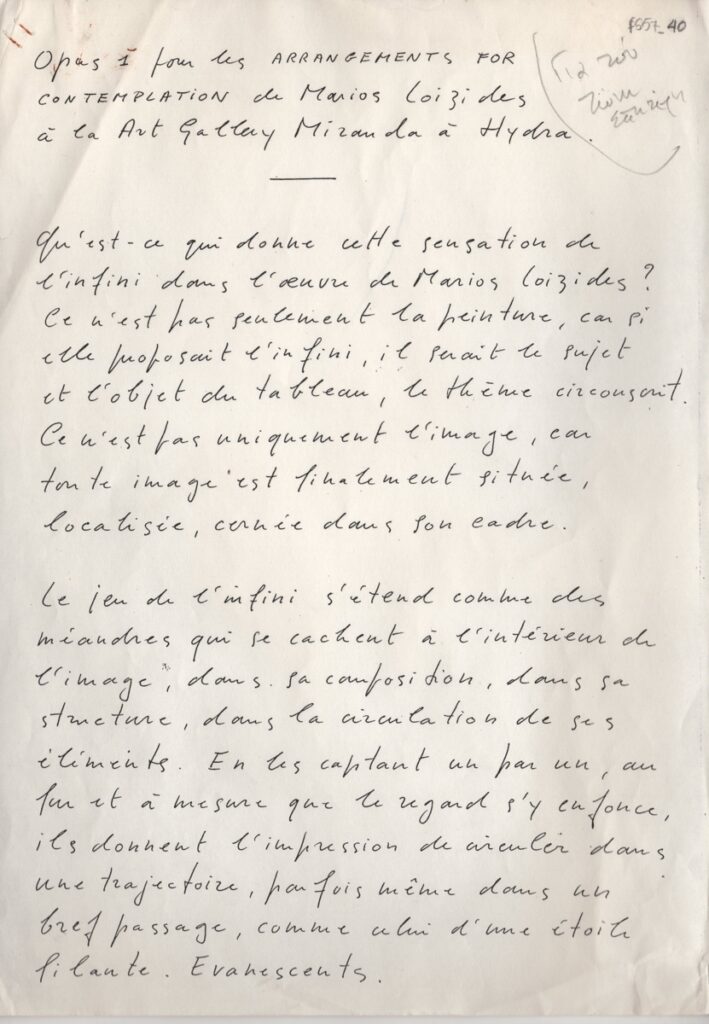 FS57_40
Opus 1 pour les ARRANGEMENTS FOR
CONTEMPLATION de Marios Loizides
à la Art Gallery Miranda à Hydra.
Για τον
Qu'est-ce qui donne cette sensation de
l'infini dans l'œuvre de Marios Loizides?
Ce n'est pas seulement la peinture, car si
elle proposait l'infini, il serait le sujet
et l'objet du tableau, le thème circonscrit.
Ce n'est pas uniquement l'image, car
toute image est finalement située,
localisée, cernée dans son cadre.
Le jeu de l'infini s'étend comme des
méandres qui se cachent à l'intérieur de
l'image, dans sa composition, dans sa
structure, dans la circulation de ses
éléments. En les captant un par un, au
fur et à mesure que le regard s'y enfonce,
ils donnent l'impression de circuler dans
une trajectoire, parfois même dans un
bref passage, comme celui d'une étoile
filante. Evanescents.